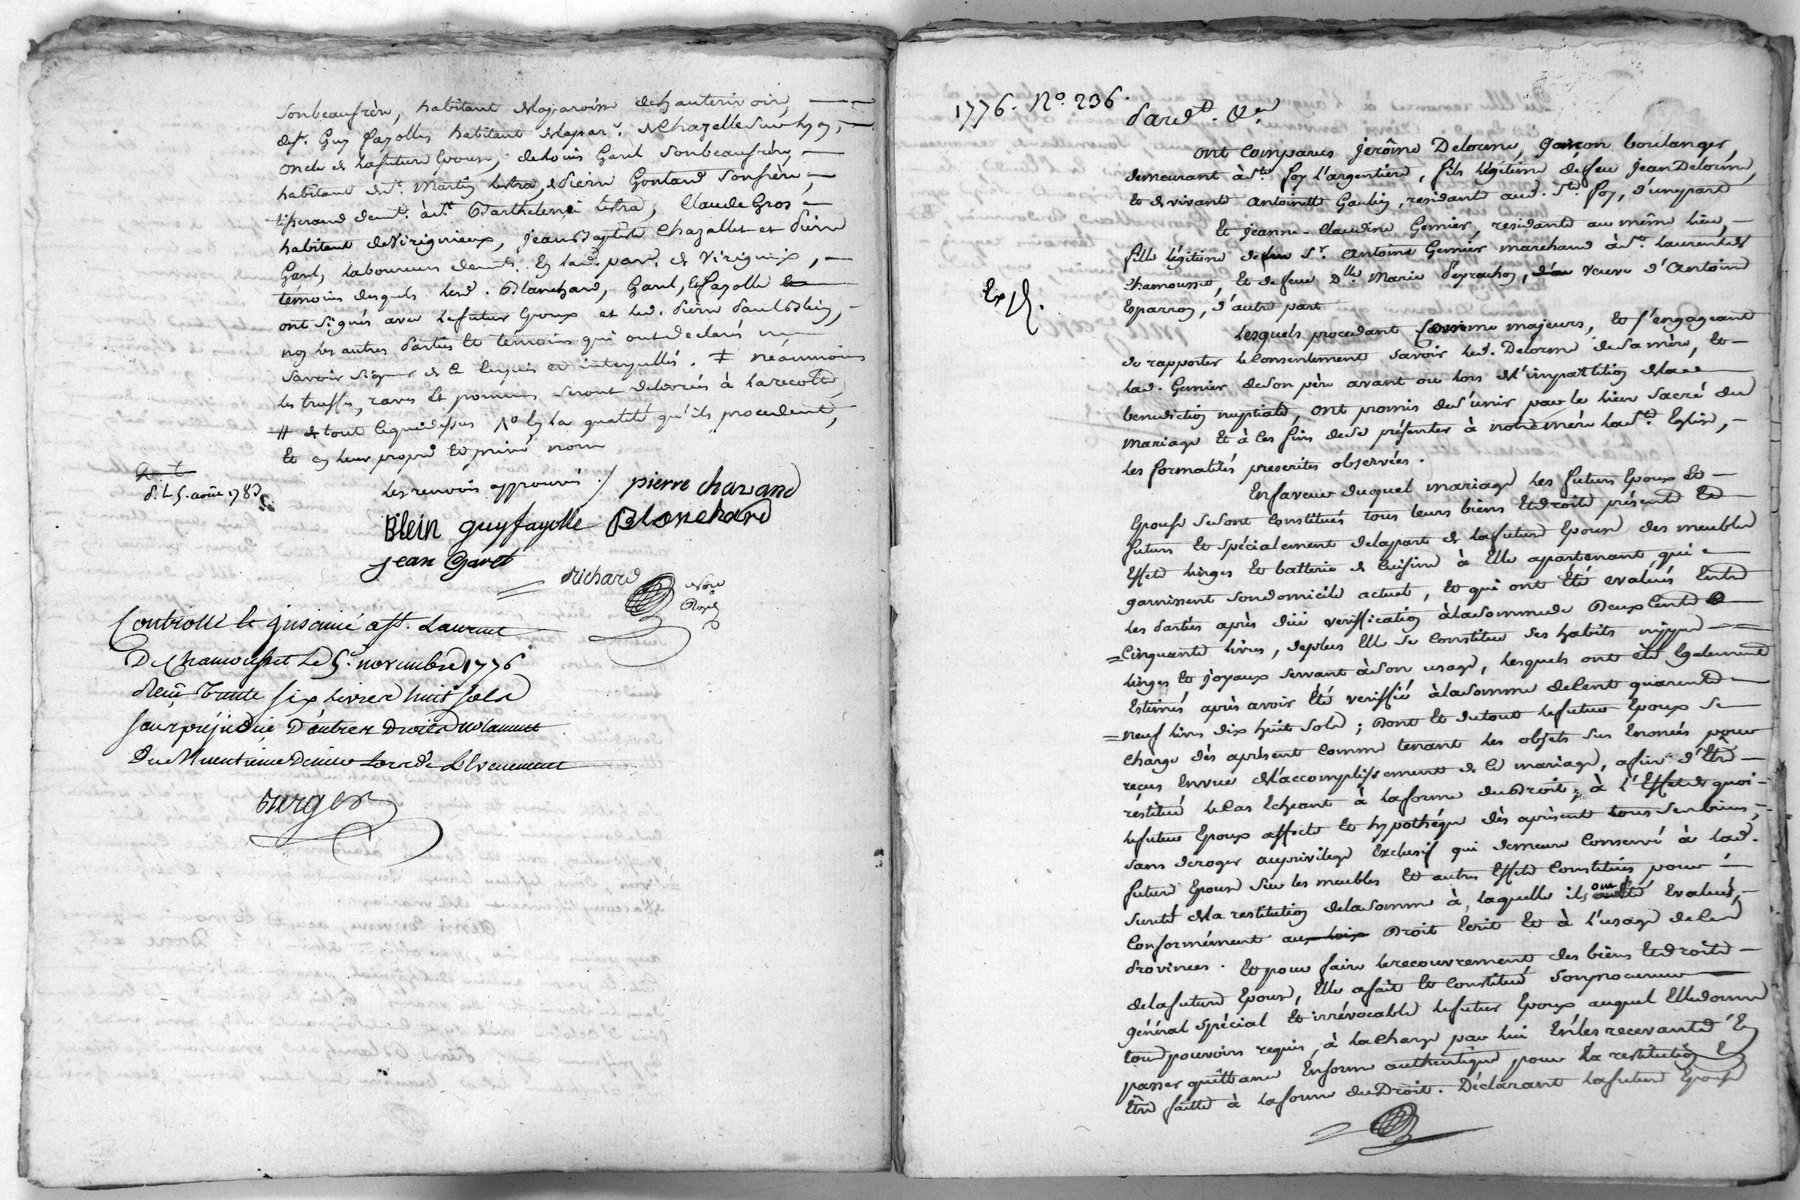 sonbeaufrère, habitant delaparoisse dehauterivoire,
de sr. Guy fayolle habitant delapar. dechazelle sur lyon,
oncle de lafuture Epouse, delouis Garel sonbeaufrère,
habitant de st. Martin lestra, de pierre Gontard sonfrère,
tisserand demt. à st. Barthelemi lestra, Claude Gros
habitant de Virignieux, jean Baptiste Chazallet et Pierre
Garel, laboureur demt. En lad. par. de Virignieux,
témoins desquels lesd. Blanchard, Garel, et fayolle
ont signés avec lefutur Epoux et led. Pierre Paul Blein,
non les autres Parties et témoins qui ont declarés ne
savoir signer de ce enquis et interpellés. ‡ néanmoins
les truffes, raves et pommes seront delivrées à la recolte
# de tout cequidessus 1o En la qualité qu'ils procedent,
et en leur propre et privé nom
d. L 5. août 1783
les renvois approuvés / pierre chavand
Blein guy fayolle Blanchard
jean Garel
Richard Nore Royal
Controllé et insinué à st. Laurent
De Chamousset le 5e. novembre 1776
Reçu trente six livres huit sols
sans préjudice D'autres Droits notamment
Du Centieme Denier Lors de L'Evenement
Burger
1776. No. 236.
Pard. &.
ont comparus jerôme Delorme, Garcon boulanger,
demeurant à ste. foy l'argentière, fils légitime de feu jean Delorme,
et de vivante Antoinette Gaulin, residant aud. Ste. foy, d'unepart
et jeanne-claudine Gernier, residante au même lieu,
fille légitime de sr. Antoine Gernier marchand à st. laurent de
chamousset, et de feue Dlle. Marie Peyrachon, veuve d'Antoine
Esparron, d'autre part
Ex
lesquels procedant comme majeurs, et s'engageant
de rapporter le consentement savoir led. Delorme desa mère, et
lad. Gernier deson père avant ou lors del'impartition dela
benediction nuptiale, ont promis des'unir par le lien sacré du
mariage et à ces fins dese présenter à notre mère la ste. Eglise,
les formalités prescrites observées.
En faveur duquel mariage les futurs Epoux et
Epouse sesont constitués tous leurs biens et droits présents et
futurs et spécialement delapart de lafuture Epouse des meubles
effets linges et batterie de cuisine à Elle apartenant qui
garnissent sondomicile actuel, et qui ont été evalués entre
les parties après due verification à lasomme de Deux Cent
Cinquante livres, deplus Elle se constitue ses habits nippes
linges et joyaux servant àson usage, lesquels ont été Egalement
Estimés après avoir été verifié à lasomme deCent quarante
neuf livres dix huit sols; dont et dutout lefutur Epoux se
charge dès aprésent comme tenant les objets sus Enoncés pour
reçus Envue del'accomplissement de ce mariage, afin d'être
réstitué le cas Echeant à laforme duDroit; à l'Effet de quoi
lefutur Epoux affecte et hypothéque dès aprésent tous ses biens,
sans deroger auprivilege Exclusif qui demeure conservé à lad.
future Epouse sur les meubles et autres effets constitués pour
sureté dela restitution delasomme à laquelle ils ont été evalués,
Conformément aux loix Droit Ecrit et à l'usage de ces
Provinces. Et pour faire lerecouvrement des biens et droits
delafuture Epouse, Elle a fait et constitué sonprocureur
général spécial et irrévocable lefutur Epoux auquel Elledonne
tout pouvoirs requis, à la charge par lui En les recevant d'En
passer quittance Enforme authentique pour la restitution
Etre faitte à laforme duDroit. Déclarant lafuture Epouse